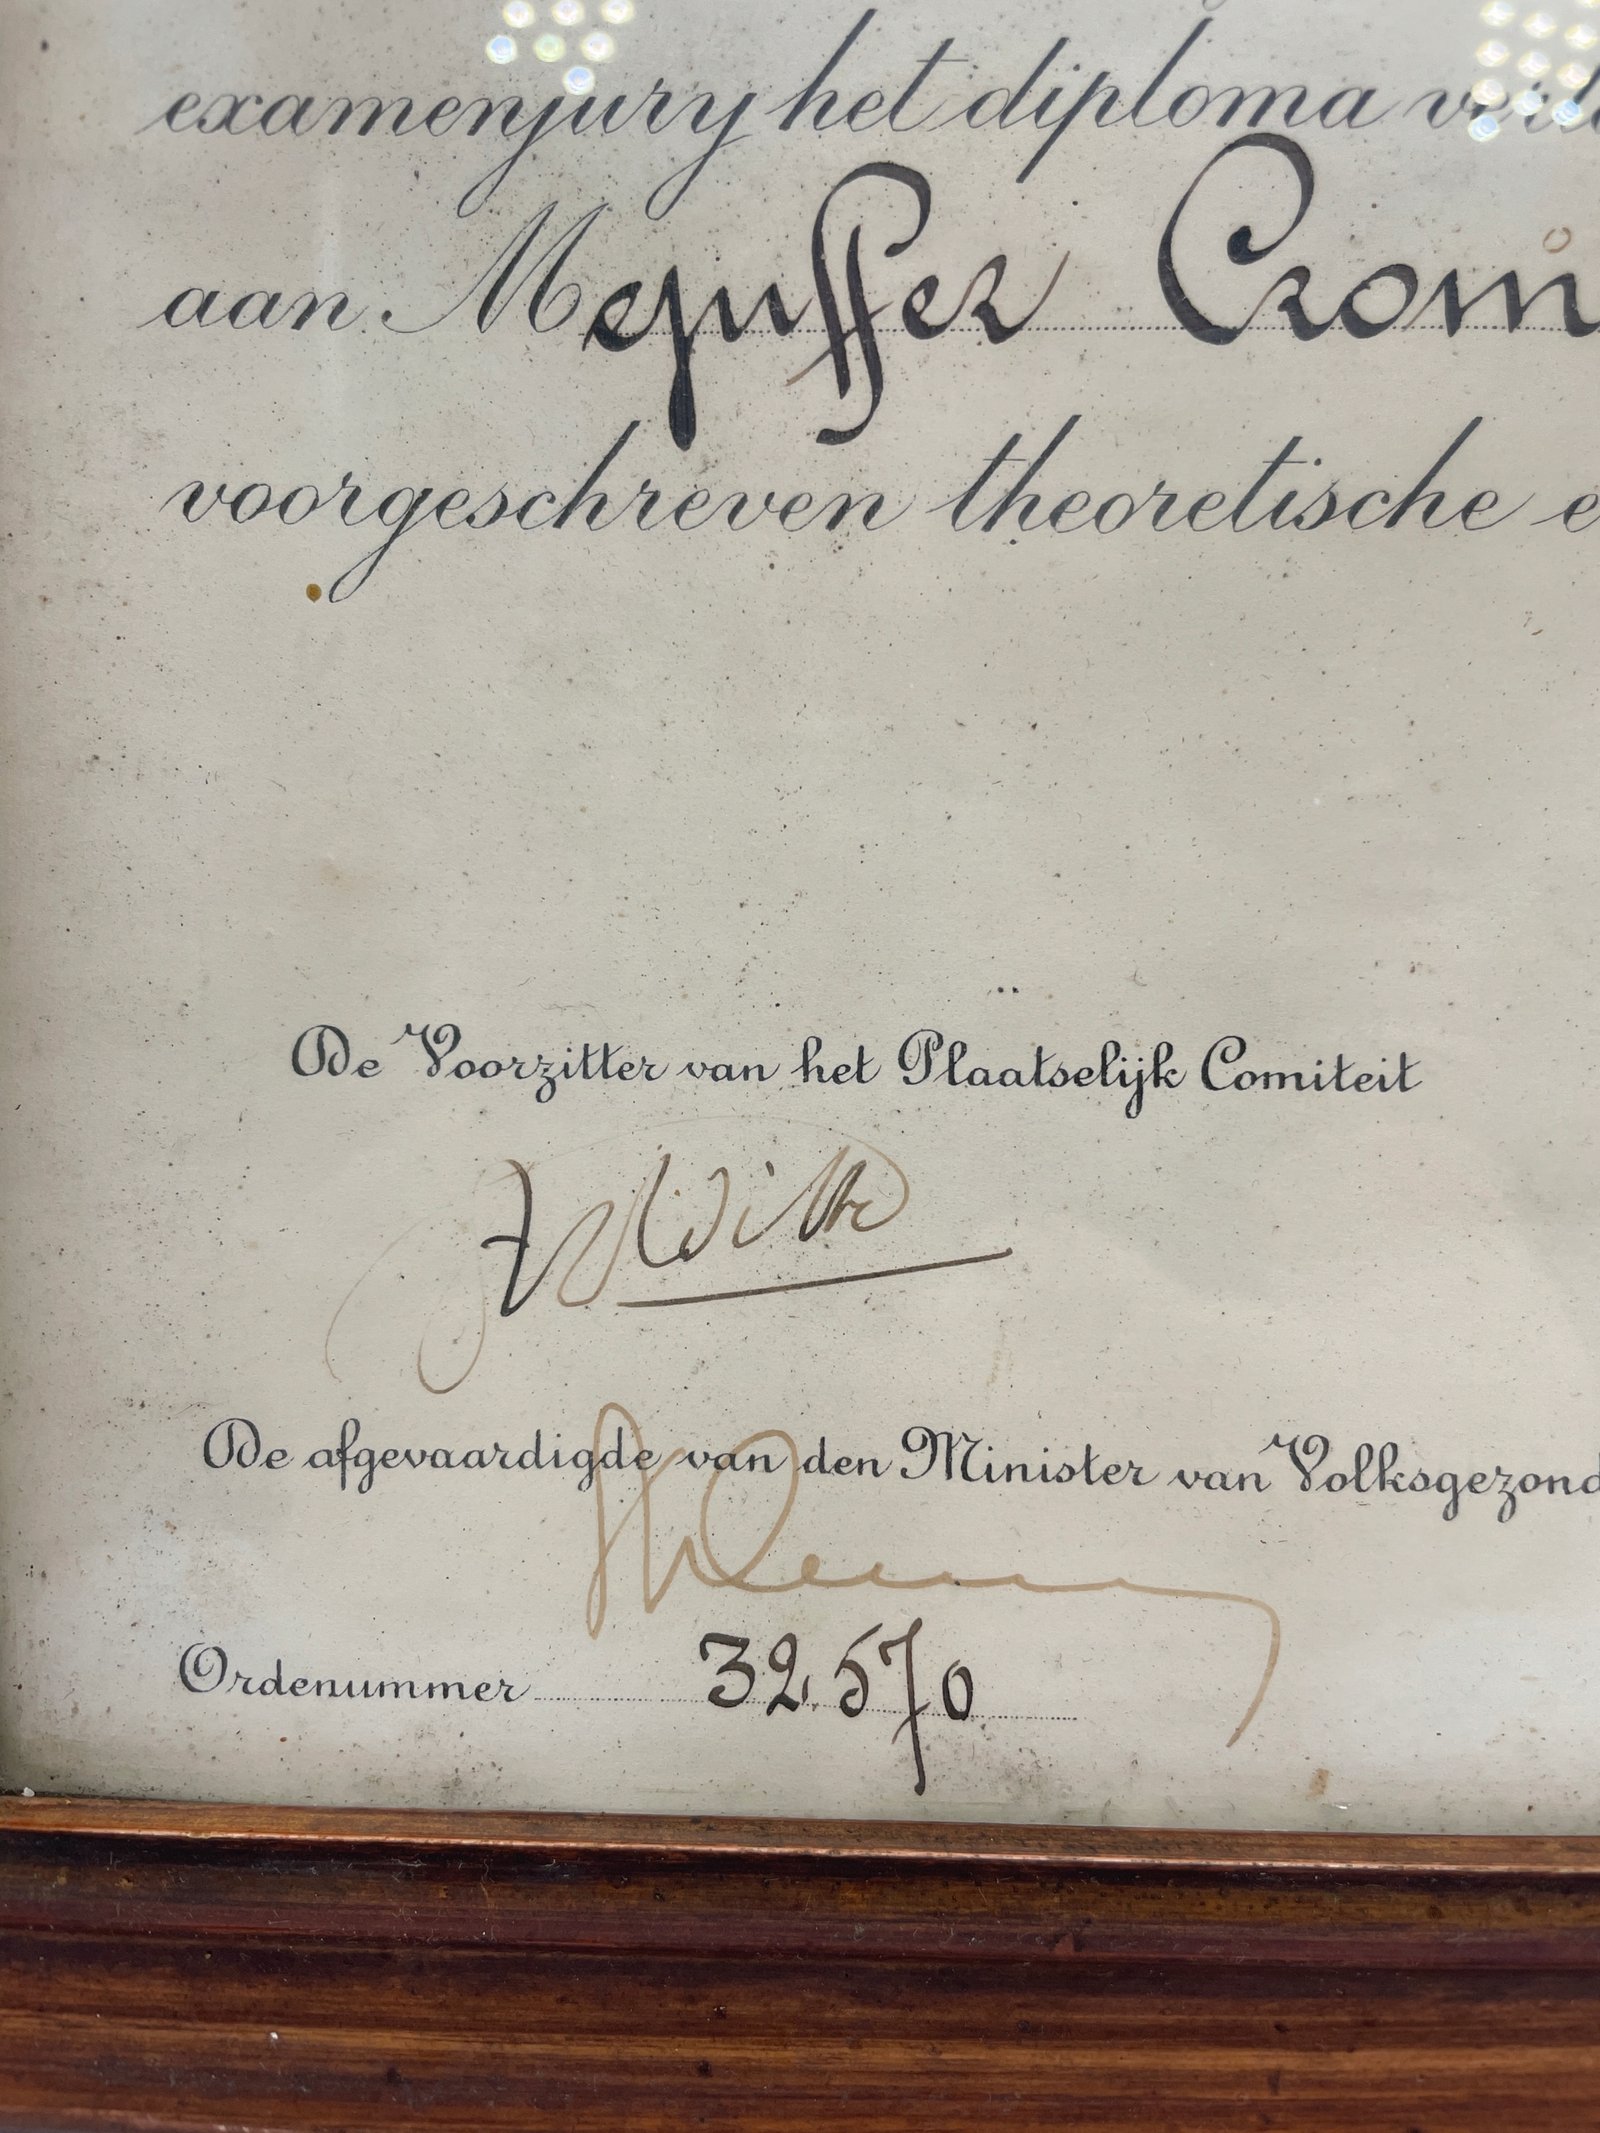 examenjury het diploma verl
aan Mejuffer Crom
voorgeschreven theoretische e
De Voorzitter van het Plaatselijk Comiteit
De afgevaardigde van den Minister van Volksgezond
Ordenummer 32.570